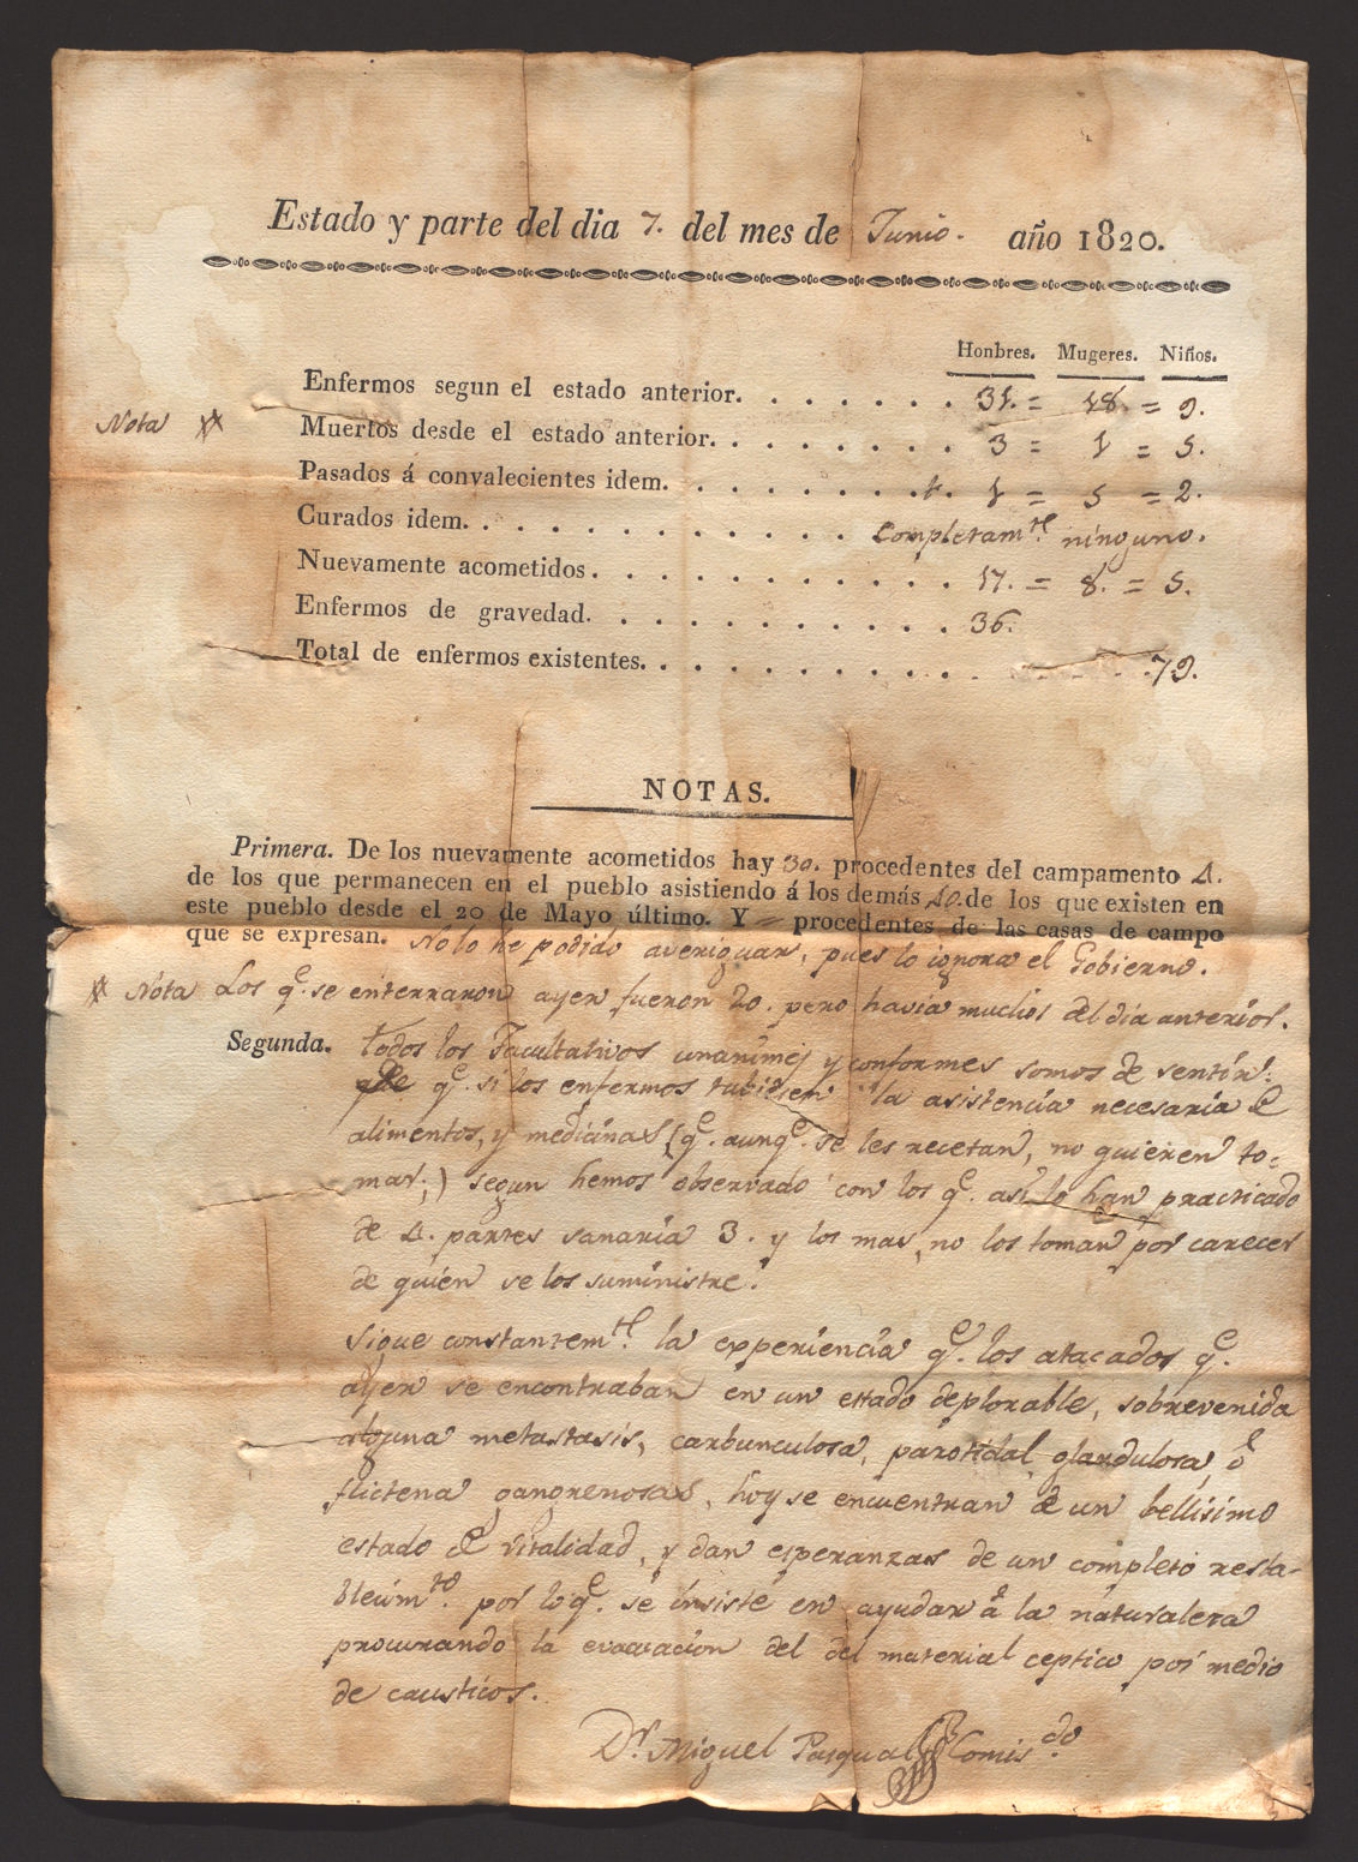 Estado y parte del dia 7. del mes de Junio. año 1820.
Honbres. Mugeres. Niños.
Enfermos segun el estado anterior. 31. = 18. = 9.
Nota Muertos desde el estado anterior. 3 = 1 = 5.
Pasados á convalecientes idem. 1 = 5 = 2.
Curados idem. Completamte. ninguno.
Nuevamente acometidos. 17. = 8. = 5.
Enfermos de gravedad. 36.
Total de enfermos existentes. 79.
NOTAS.
Primera. De los nuevamente acometidos hay 30. procedentes del campamento 4.
de los que permanecen en el pueblo asistiendo á los demás 10. de los que existen en
este pueblo desde el 20 de Mayo último. Y = procedentes de las casas de campo
que se expresan. No lo he podido averiguar, pues lo ignora el Gobierno.
Nota Los qe. se enterraron ayer fueron 20. pero havia muchos del dia anterior.
Segunda. Todos los Facultativos unanimes y conformes somos de sentir:
qe. si los enfermos tubiesen la asistencia necesaria de
alimentos, y medicinas (qe. aunqe. se les recetan, no quieren to=
mar;) segun hemos observado con los qe. asi lo han practicado
de 4. partes sanaria 3. y los mas, no los toman por carecer
de quien se los suministre.
Sigue constantemte. la experiencia qe. los atacados qe.
ayer se encontraban en un estado deplorable, sobrevenida
alguna metastasis, carbunculosa, parotidal, glandulosa, ó
flictena gangrenosas, hoy se encuentran de un bellisimo
estado de vitalidad, y dan esperanzas de un completo resta-
blecimto. por lo qe. se insiste en ayudar á la naturaleza
procurando la evacuacion del del material ceptico por medio
de causticos.
Dr. Miguel Pasqual Comisdo.